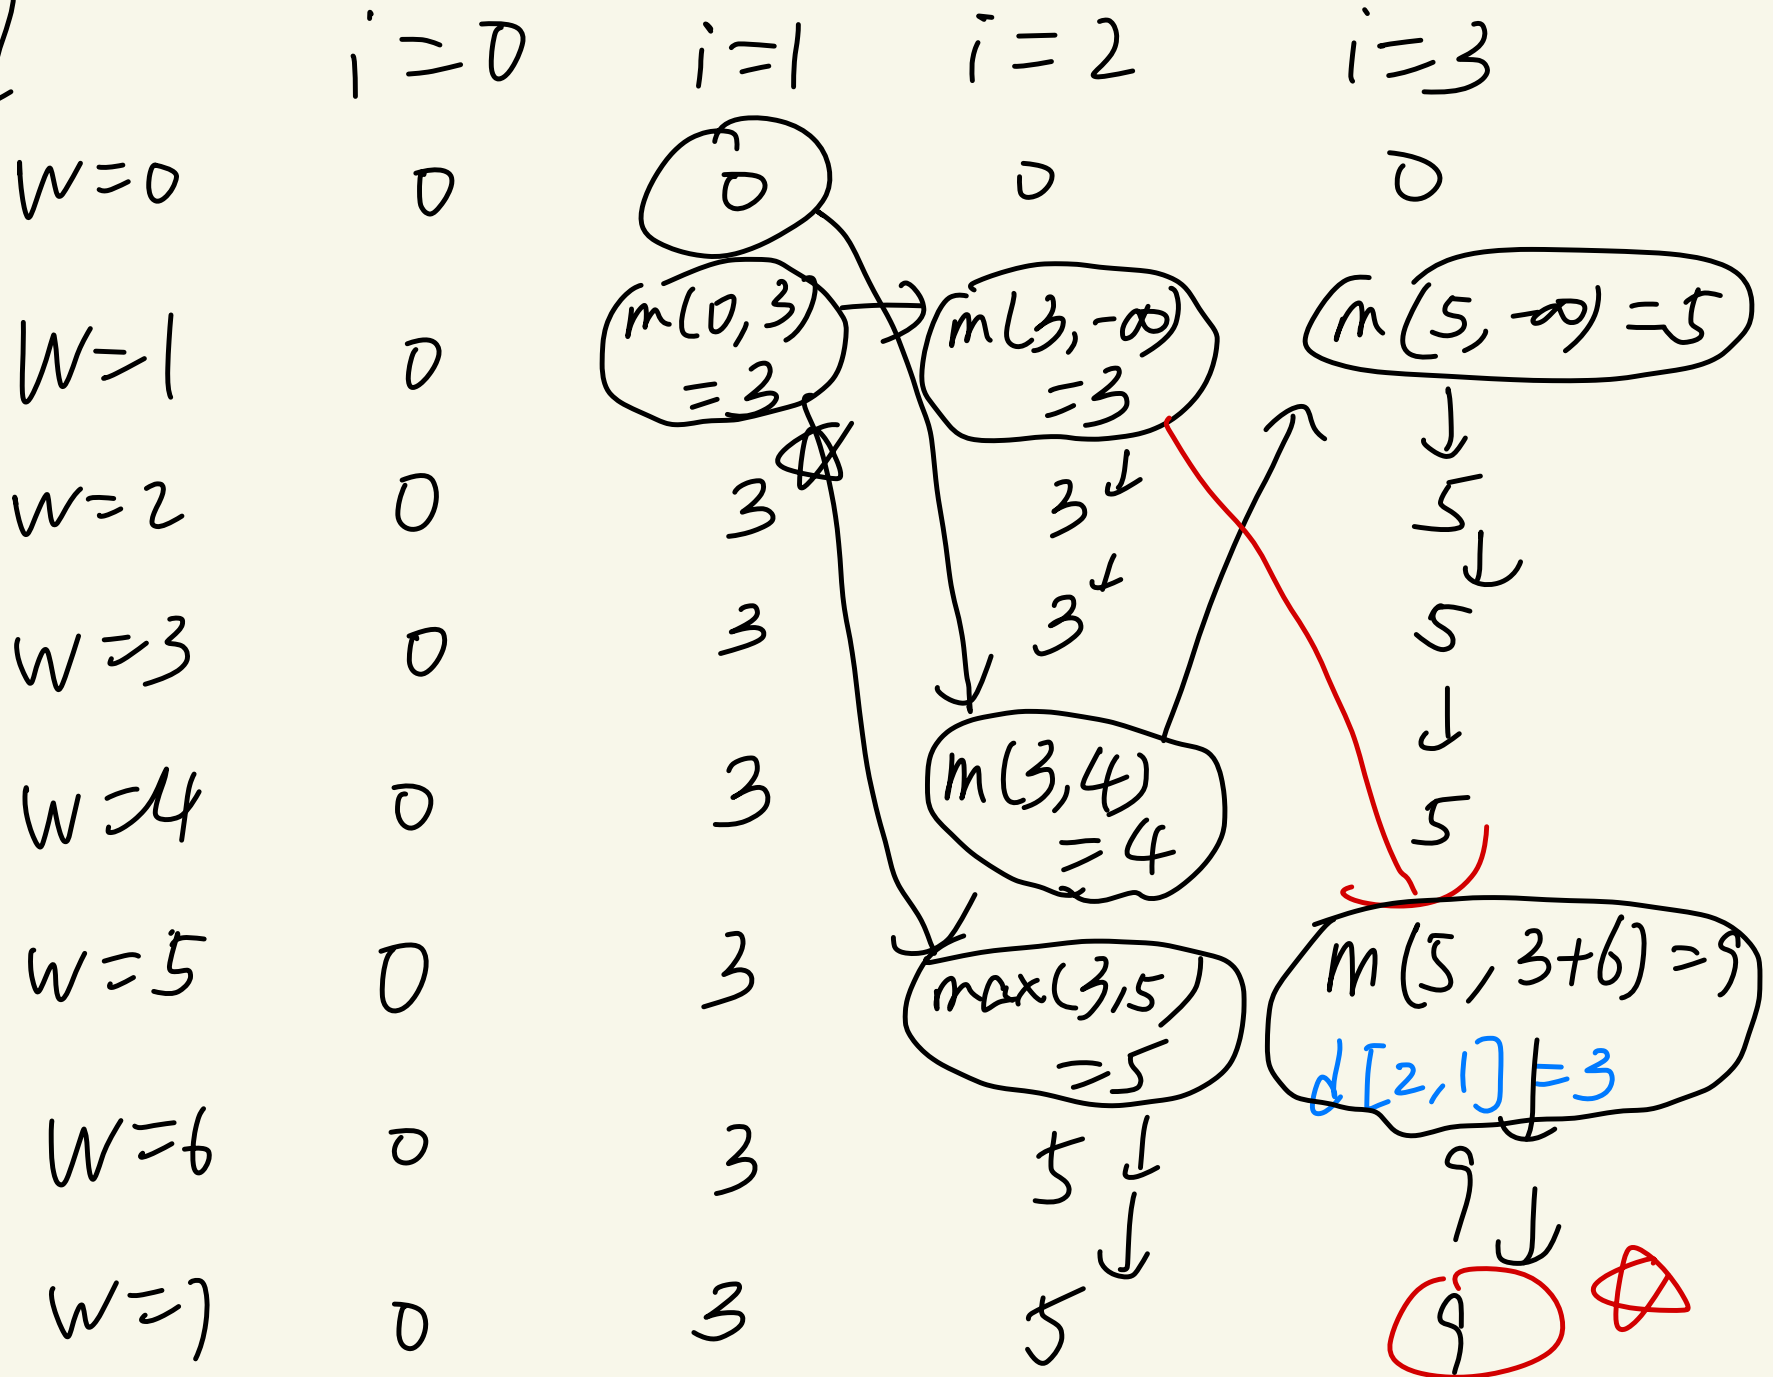 i=0 i=1 i=2 i=3
W=0 0 0 0 0
W=1 0 m(0,3) =3 m(3,-∞) =3 m(5,-∞)=5
W=2 0 3 3 5
W=3 0 3 3 5
W=4 0 3 m(3,4) =4 5
W=5 0 3 max(3,5) =5 m(5,3+6)=9 d[2,1]=3
W=6 0 3 5 9
W=7 0 3 5 9